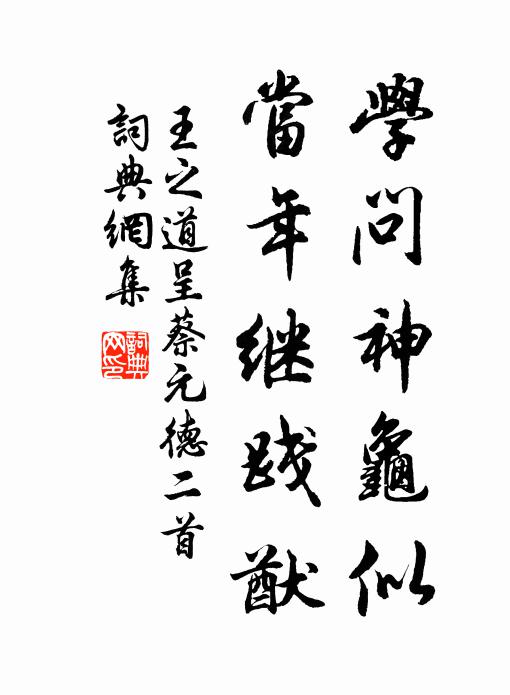 學問神龜似
當年继践猷
王之道呈蔡元德二首
詞典網集
詞典网印